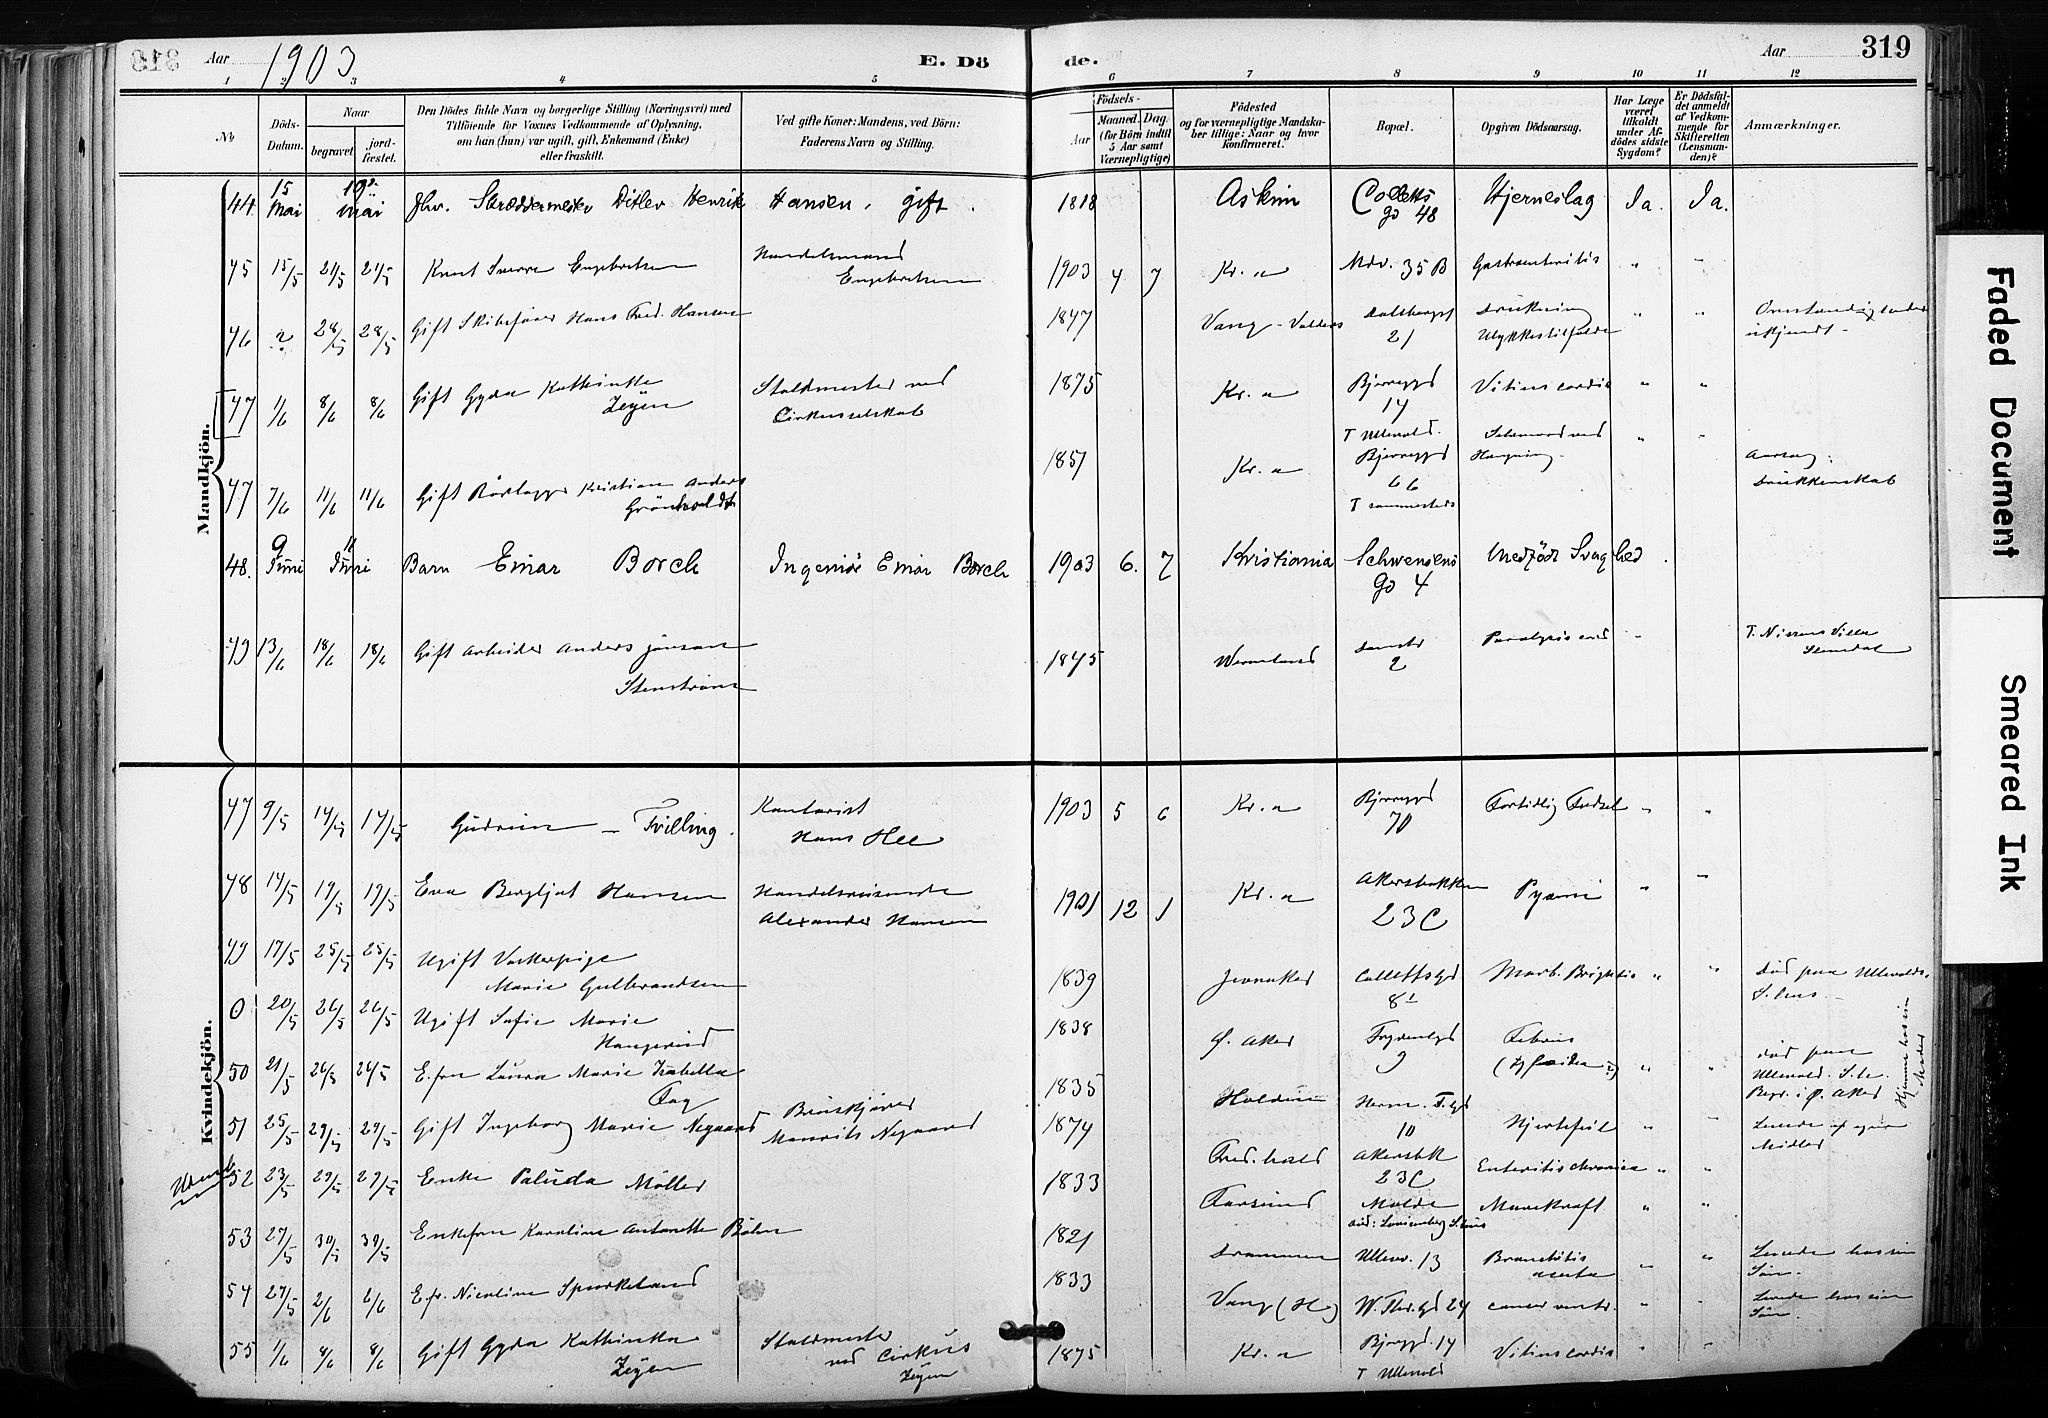 319
Aar 1903
E. Dö
de.
Aar
319
1 2 3 4 5 6 7 8 9 10 11 12
№
Döds-Datum.
Naar
begravet
jord-fæstet.
Den Dödes fulde Navn og borgerlige Stilling (Næringsvei) med
Tilföiende for Voxnes Vedkommende af Oplysning,
om han (hun) var ugift, gift, Enkemand (Enke)
eller fraskilt.
Ved gifte Koner: Mandens, ved Börn:
Faderens Navn og Stilling.
Födsels-
Aar
Maaned. Dag.
(for Börn indtil
5 Aar samt
Værnepligtige)
Födested
og for værnepligtige Mandska-
ber tillige: Naar og hvor
Konfirmeret.
Bopæl.
Opgiven Dödsaarsag.
Har Læge
været
tilkaldt
under Af-
dödes sidste
Sygdom?
Er Dödsfal-
det anmeldt
af Vedkom-
mende for
Skifteretten
(Lensman-
den)?
Anmærkninger.
Mandkjön.
44 15 Mai 19 Mai Skræddermester Ditlev Henrik Hansen, gift. 1818 Askim Colletts gd 48 Hjerneslag Ja. Ja.
45 15/5 21/5 21/5 Knut Sverre Engebretsen Handelsmand Engebretsen 1903 4 7 Kr.a 35 B Gastroenteritis " "
46 ? 28/5 28/5 Gift Skibsfører Hans Fred. Hansen 1847 Vang - Valders Dalsbergst 21 Drukning Ulykkestilfælde " " Omstændigheder ukjendt
47 1/6 8/6 8/6 Gift Gyda Kathinka Zeyen Staldmester ved Cirkusselskab 1875 Kr.a Bjerregd 14 T Ullevold. Vitium cordis " "
47 7/6 11/6 11/6 Gift Rørlægger Kristian Anders Grönvoldt 1851 Kr.a Bjerregd 66 Selvmord ved Hængning " " Aarsag: Drukkenskab
48. 9 Juni 11 Juni Barn Einar Borch Ingeniör Einar Borch 1903 6. 7 Kristiania Schwensens gd 4 Medfödt Svaghed.
49 13/6 18/6 18/6 Gift Arbeider Anders Jonsen Stenström 1845 Wermland 2 T. Nissens Villa
Kvindekjön.
47 9/5 14/5 14/5 Gudrun - Tvilling. Kontorist Hans Hee 1903 5 6 Kr.a Bjerregd 70 Fortidlig Fødsel " "
48 14/5 19/5 19/5 Eva Bergljot Hansen Handelsreisende Alexander Hansen 1901 12 1 Kr.a Akersbakken 23 C Pyæmi " "
49 17/5 25/5 25/5 Ugift Vaskerpige Marie Gulbrandsen 1839 Jevnaker Collettsgd 8 Morb. Brightii " " Død paa Ullevolds S.hus.
0 20/5 26/5 26/5 Ugift Sofie Marie Haugerud 1838 Ø. Aker Frydenlgd 9 Febris " " død paa Ullevold. S.h. Begr. i Ø. Aker
50 21/5 26/5 26/5 E.fru Laura Marie Isabella Fog 1835 Herm. F. gd 10 Hjertefeil " "
51 25/5 29/5 29/5 Gift Ingeborg Marie Nygaard Mauritz Nygaard 1874 Fred.hald Akersbk 23 C Enteritis chronica " "
52 23/5 29/5 29/5 Enke Paluda Möller 1833 Farsund Molde Marekraft " "
53 27/5 30/5 30/5 Enkefru Karoline Antonette Böhn 1821 Drammen Ullev. 13 Bronchitis acuta " " Levede hos sin Søn.
54 27/5 2/6 2/6 E.fr. Nicoline Spørkeland 1833 Vang (H) W. Thr.gd 24 cancer ventr. " " Levede hos sin Søn.
55 1/6 8/6 8/6 Gift Gyda Kathinka Zeyen Staldmester ved Cirkus Zeyen 1875 Kr.a Bjergd. 14 T Ullevold Vitium cordis " "
Faded Document
Smeared Ink